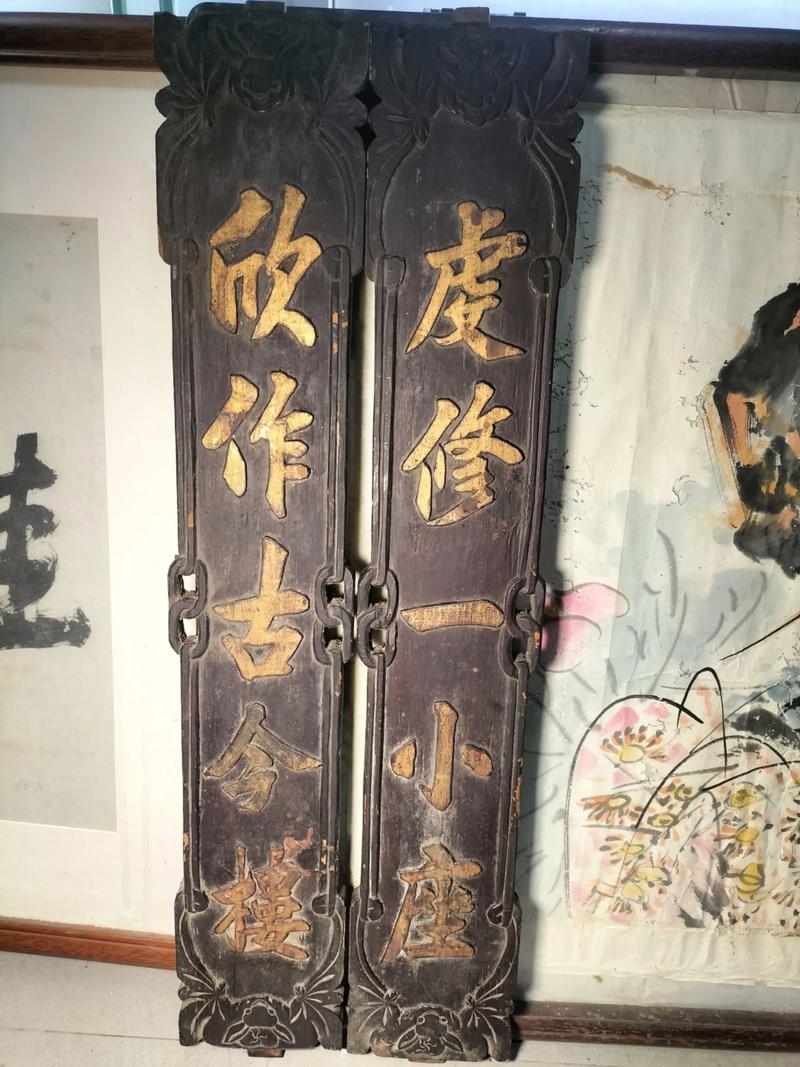 虔修一小座
欣作古今樓